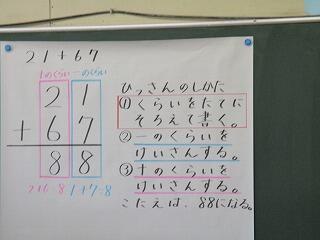 21+67
十のくらい 一のくらい
21
+67
88
2+6=8 1+7=8
ひっさんのしかた
① くらいをたてに
そろえて書く。
② 一のくらいを
けいさんする。
③ 十のくらいを
けいさんする。
こたえは、88になる。